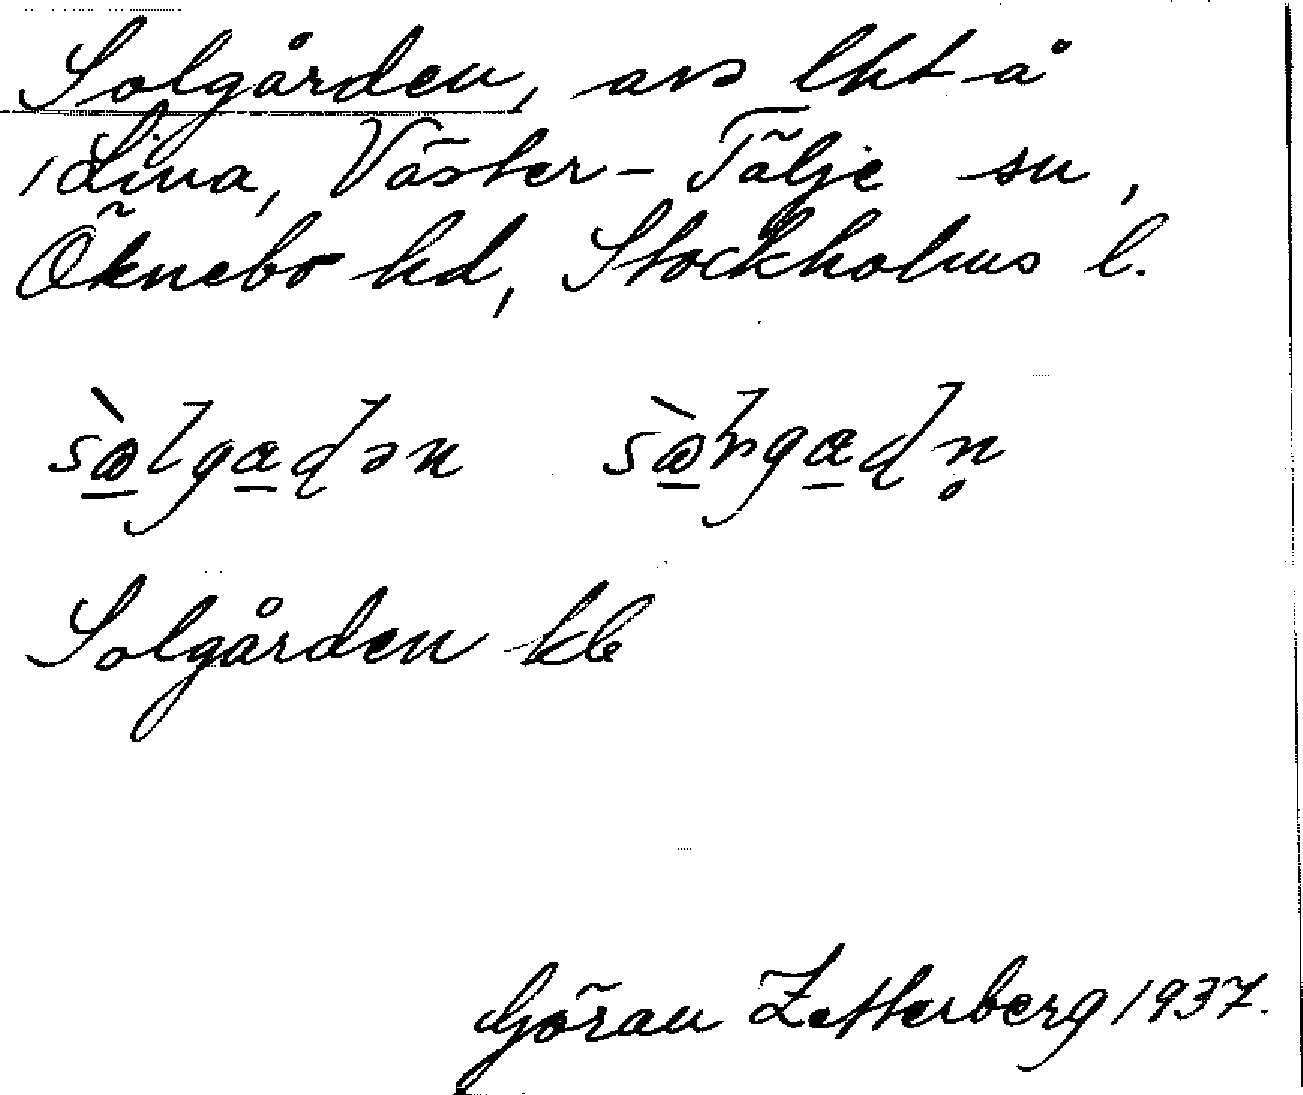 Solgården, avs lht å
1 Lina, Väster-Tälje sn,
Öknebo hd, Stockholms l.
Solgården kb
Göran Zetterberg 1937.